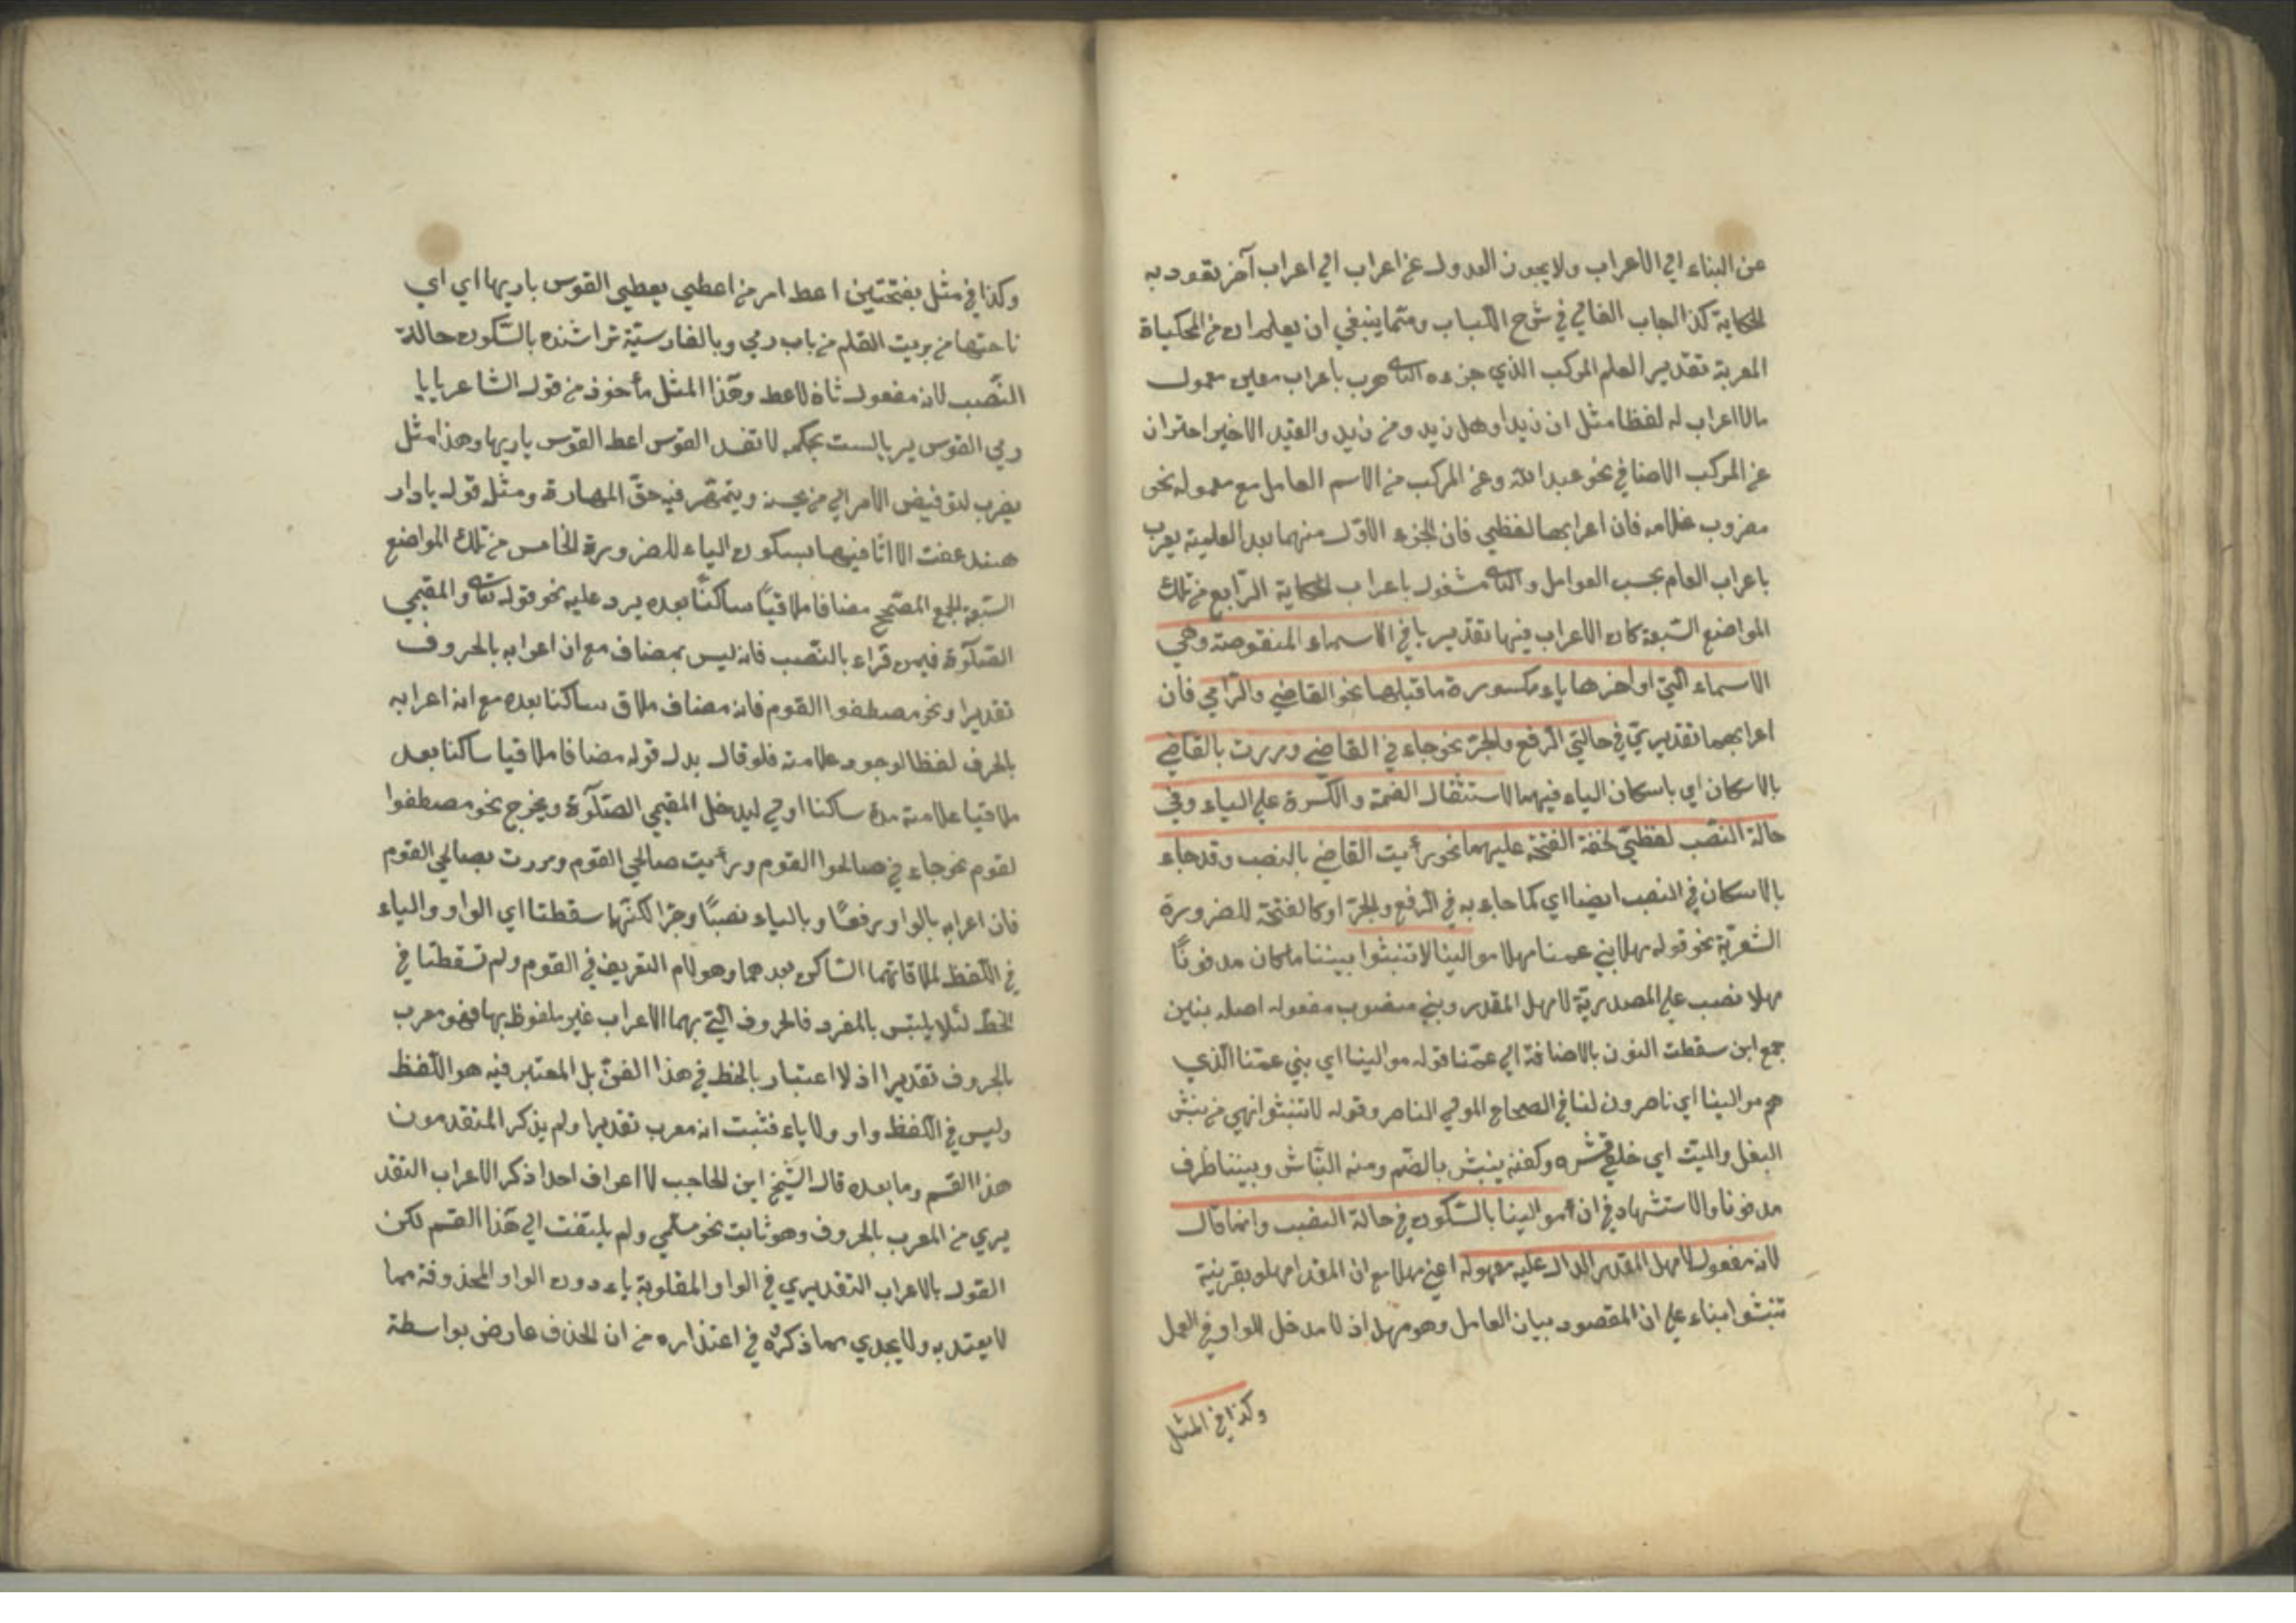 عن البناء الي الاعراب ولا يجوز العدول عن اعراب الي اعراب آخر تقود به
الحكاية كذا اجاب الفالي في شرح اللباب ومما ينبغي ان يعلم ان من المحكياة
المعربة تقدير العلم المركب الذي جزءه الثاني معرب باعراب معين معمول
مالا اعراب له لفظا مثل ان زيدا وهل زيد ومن زيد والقيد الاخير احتراز
عن المركب الاضافي نحو عبد الله وعن المركب من الاسم العامل مع معموله نحو
مضروب غلامه فان اعرابهما لفظي فان الجزء الاول منهما بعد العلمية يعرب
باعراب العام بحسب العوامل والثاني مشغول باعراب الحكاية الرابع من تلك
المواضع السبعة كان الاعراب فيها تقديريا في الاسماء المنقوصة وهي
الاسماء التي اواخرها ياء مكسورة ما قبلها نحو القاضي والرامي فان
اعرابهما تقديري في حالتي الرفع والجر نحو جاءني القاضي ومررت بالقاضي
بالاسكان اي باسكان الياء فيهما لاستثقال الضمة والكسرة علي الياء وفي
حالة النصب لفظي لخفة الفتحة عليهما نحو رأيت القاضي بالنصب وقد جاء
بالاسكان في النصب ايضا اي كما جاء به في الرفع والجر او كالفتحة للضرورة
الشعرية نحو قوله مهلا بني عمنا مهلا موالينا لا تنبثوا بيننا ما كان مدفونًا
مهلا نصب علي المصدرية لامهل المقدر وبني منصوب مفعوله اصله بنين
جمع ابن سقطت النون بالاضافة الي عمنا قوله موالينا اي بني عمنا الذي
هم موالينا اي ناصرون لنا في الصحاح المولي الناصر وقوله لا تنبثوا نهي من نبش
البغل والميت اي خلع قشره وكفنه ينبش بالضم ومنه النباش وبيننا ظرف
مدفونا والاستشهاد في ان موالينا بالسكون في حالة النصب وانما قال
لانه مفعول لامهل المقدر الدال عليه مفعوله اعني مهلا مع ان المقدر امهلو بقرينة
تنبثوا بناء علي ان المقصود بيان العامل وهو مهل اذ لا مدخل للواو في العمل
وكذا في المثل
وكذا في مثل بفتحتين اعط امر من اعطي يعطي القوس باريها اي اي
ناحتها من بريت القلم من باب رمي وبالفارسية تراشنده بالسكون حالة
النصب لانه مفعول ثان لاعط وهذا المثل مأخوذ من قول الشاعر يا با
ري القوس بريا لست بحكمه لا تفسد القوس اعط القوس باريها وهذا مثل
يضرب لتوفيض الامر الي من يحسنه ويتمهر فيه حق المهارة ومثل قوله يا دار
هند عفت الا اثافيها بسكون الياء للضرورة الخامس من تلك المواضع
السبعة الجمع المصحح مضافا ملاقيًا ساكنًا بعده يرد عليه نحو قوله تعالي والمقيمي
الصلوة فيمن قراء بالنصب فانه ليس بمضاف مع ان اعرابه بالحروف
تقديرا ونحو مصطفوا القوم فانه مضاف ملاق ساكنا بعده مع انه اعرابه
بالحرف لفظا لوجود علامته فلو قال بدل قوله مضافا ملاقيا ساكنا بعد
ملاقيا علامته مدة ساكنا اولي ليدخل المقيمي الصلوة ويخرج نحو مصطفوا
لقوم نحو جاءني صالحوا القوم ورأيت صالحي القوم ومررت بصالحي القوم
فان اعرابه بالواو رفعًا وبالياء نصبًا وجرا لكنهما سقطتا اي الواو والياء
في اللفظ لملاقاتهما الساكن بعدهما وهو لام التعريف في القوم ولم تسقطتا في
الخط لئلا يلتبس بالمفرد فالحروف التي بهما الاعراب غير ملفوظ بها فهو معرب
بالحروف تقديرا اذ لا اعتبار بالخط في هذا الفن بل المعتبر فيه هو اللفظ
وليس في اللفظ واو ولا ياء فثبت انه معرب تقديرا ولم يذكر المتقدمون
هذا القسم وما بعده قال الشيخ ابن الحاجب لا اعراف احدا ذكر الاعراب التقد
يري من المعرب بالحروف وهو ثابت نحو مسلمي ولم يلتفت الي هذا القسم لكن
القول بالاعراب التقديري في الواو المقلوبة ياء دون الواو المحذوفة مما
لا يعتد به ولا يجدي بما ذكره في اعتذاره من ان الحذف عارض بواسطة